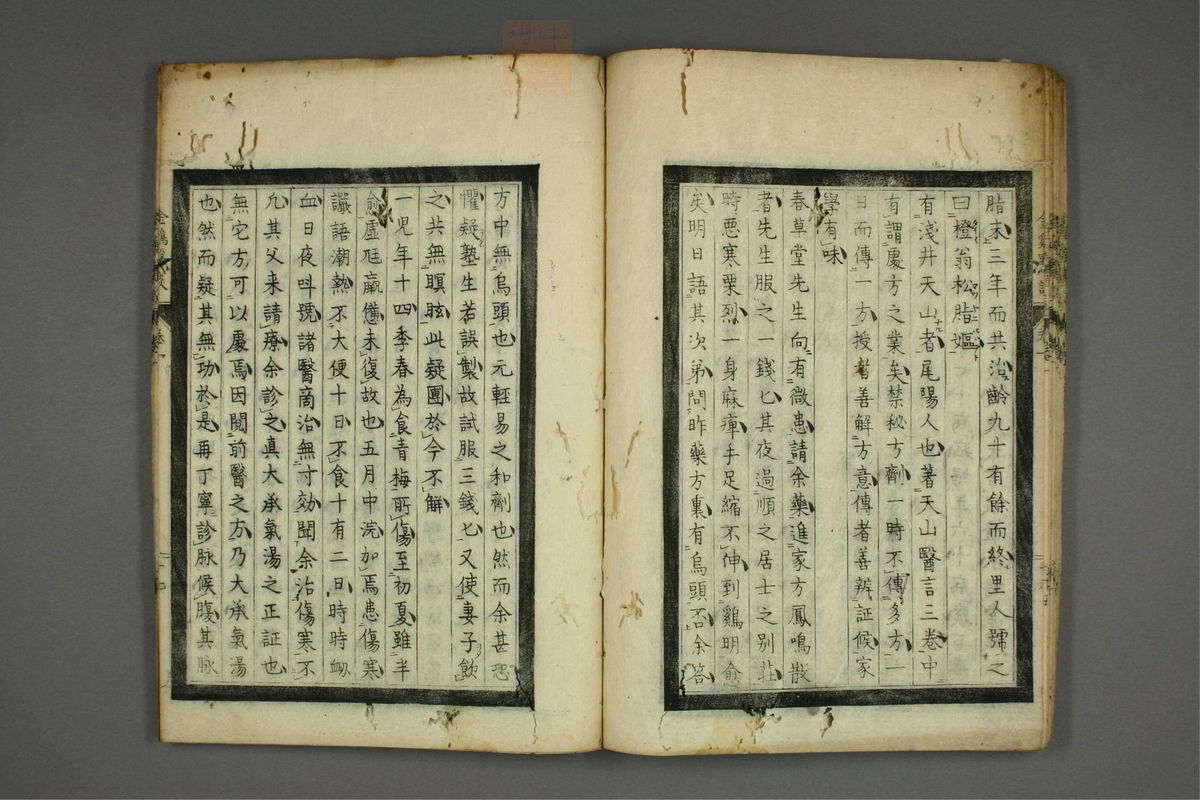 脂來三年而共治齡九十有餘而終里人號之
曰橙翁松脂嫗
有淺井天山者尾陽人也著天山醫言三卷中
有謂處方之業矣禁秘方劑一時不傳多方一
日而傳一方授者善解方意傳者善辨証候家
學有味
春草堂先生向有微患請余藥進家方鳳鳴散
者先生服之一錢匕其夜過順之居士之別莊
時惡寒栗烈一身麻痺手足縮不伸到鷄明愈
矣明日語其次弟問昨藥方裏有烏頭否余答
方中無烏頭也元輕易之和劑也然而余甚恐
懼疑塾生若誤製故試服三錢匕又使妻子飲
之共無瞑眩此疑團於今不解
一児年十四季春為食青梅所傷至初夏雖半
愈虛尫羸憊未復故也五月中浣加焉患傷寒
讝語潮熱不大便十日不食十有二日時時衂
血日夜呌號諸醫商治無寸効聞余治傷寒不
凡其父来請療余診之真大承氣湯之正証也
無它方可以處焉因閱前醫之方乃大承氣湯
也然而疑其無功於是再丁寧診脉候腹其脉